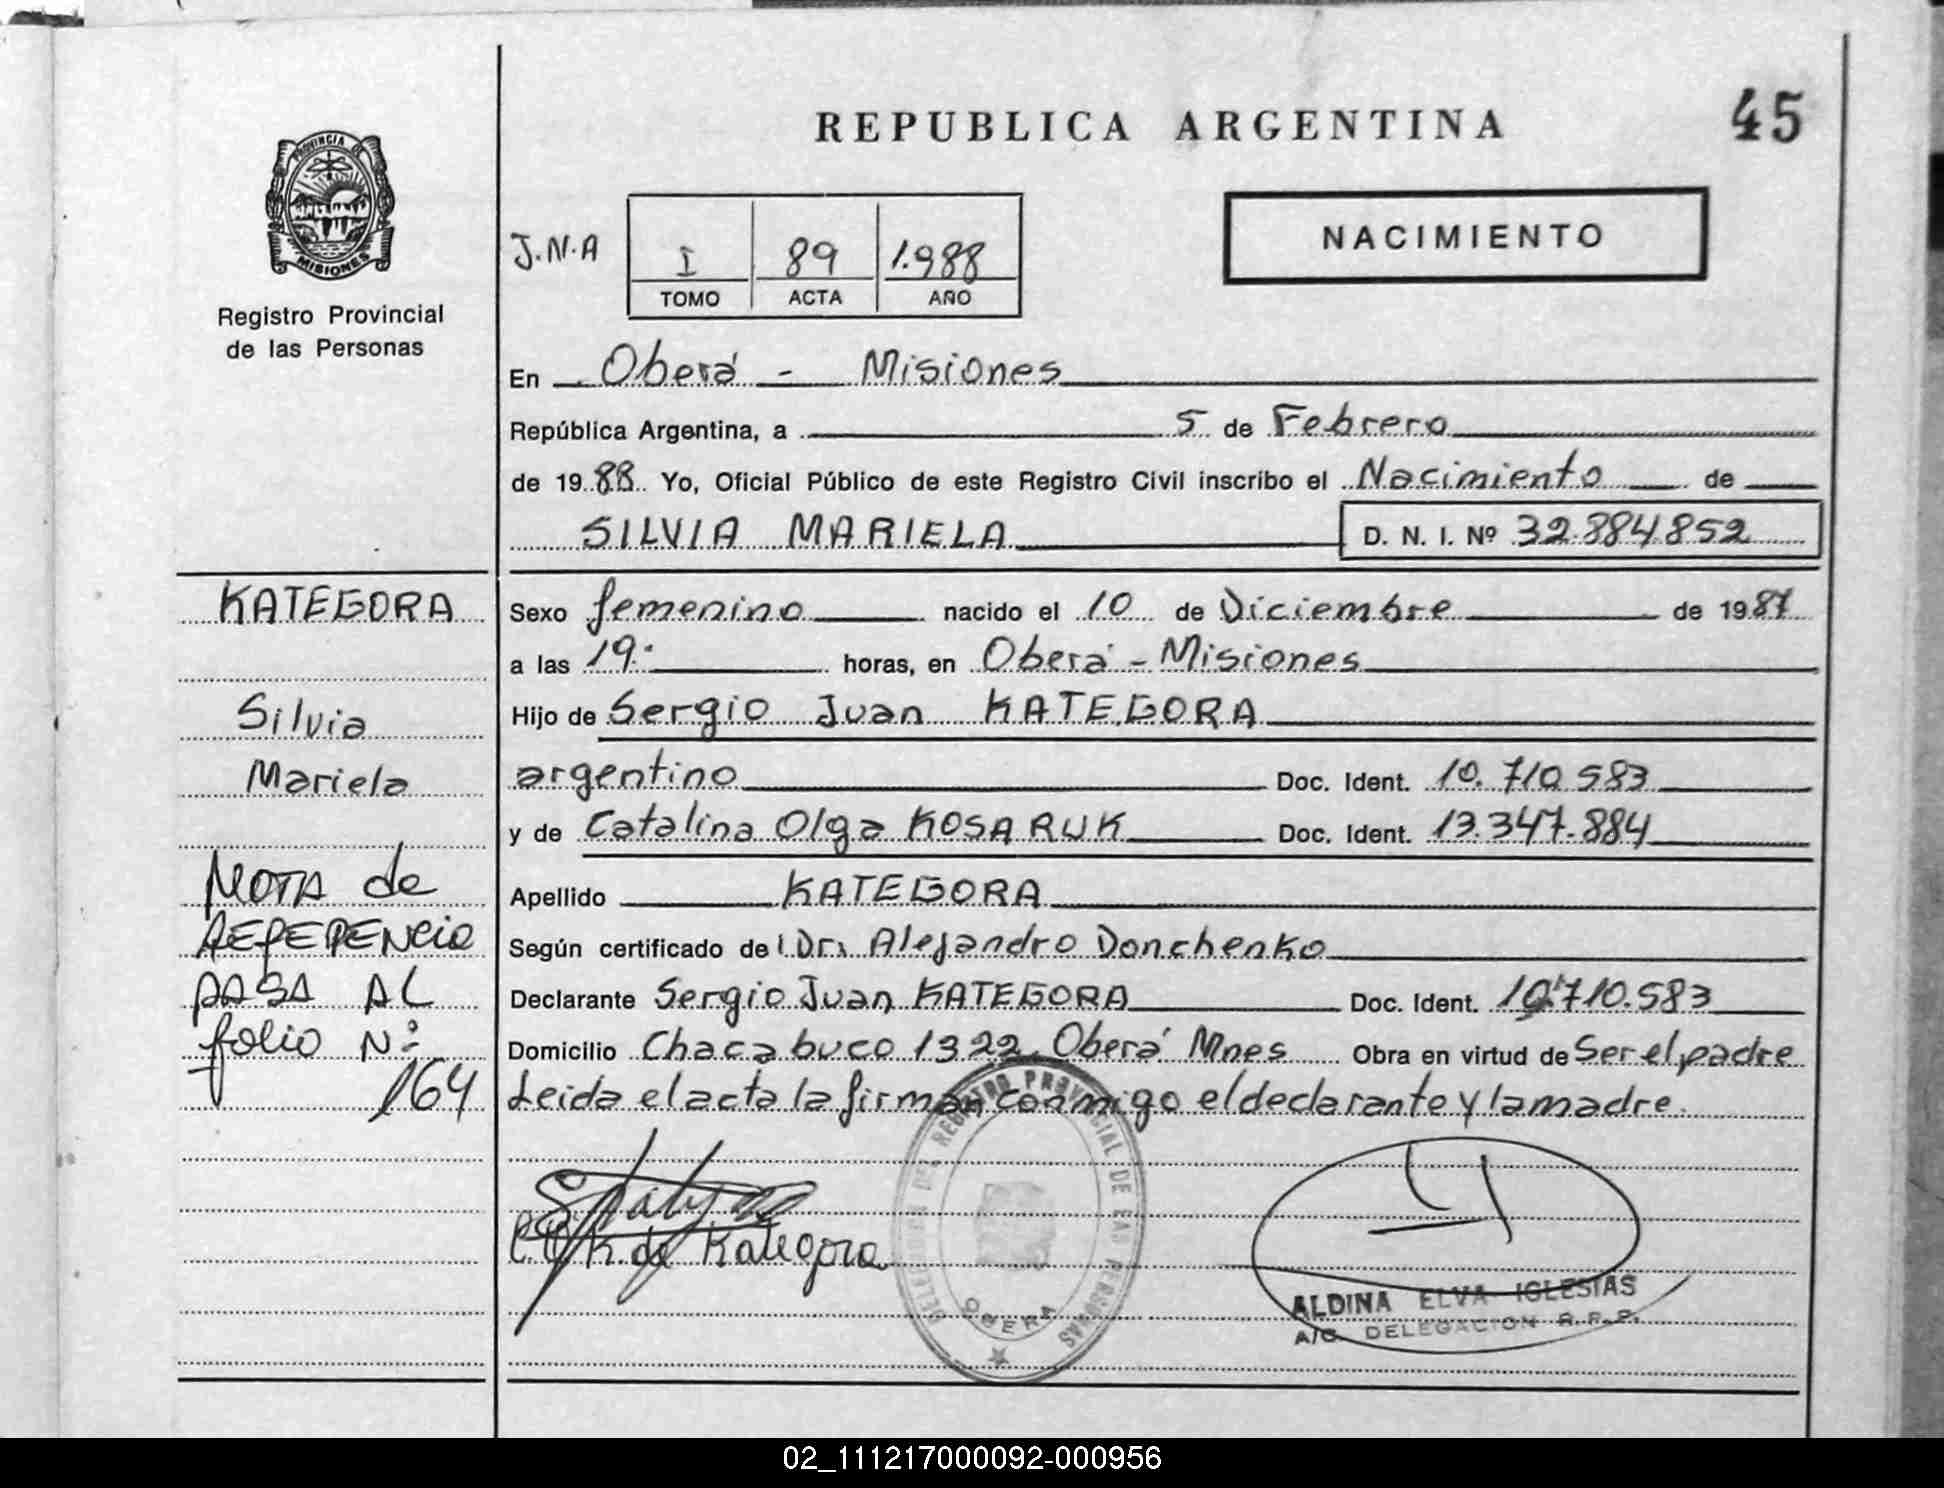 REPUBLICA ARGENTINA
45
PROVINCIA DE
MISIONES
Registro Provincial
de las Personas
J.N.A
I 89 1.988
TOMO ACTA AÑO
NACIMIENTO
En Oberá - Misiones
República Argentina, a 5 de Febrero
de 1988 Yo, Oficial Público de este Registro Civil inscribo el Nacimiento de
SILVIA MARIELA D. N. I. Nº 32.884.852
KATEGORA
Silvia
Mariela
NOTA de
REFERENCIA
PASA AL
folio Nº:
164
Sexo femenino nacido el 10 de Diciembre de 1987
a las 19: horas, en Oberá - Misiones
Hijo de Sergio Juan KATEGORA
argentino Doc. Ident. 10.710.583
y de Catalina Olga KOSARUK Doc. Ident. 13.347.884
Apellido KATEGORA
Según certificado de Dr. Alejandro Donchenko
Declarante Sergio Juan KATEGORA Doc. Ident. 10.710.583
Domicilio Chacabuco 1322 Oberá Mnes Obra en virtud de Ser el padre
Leida el acta la firman conmigo el declarante y la madre.
C.O.K. de Kategora
DELEGACION DEL REGISTRO PROVINCIAL DE LAS PERSONAS
OBERA
ALDINA ELVA IGLESIAS
A/C DELEGACION R.P.P.
02_111217000092-000956